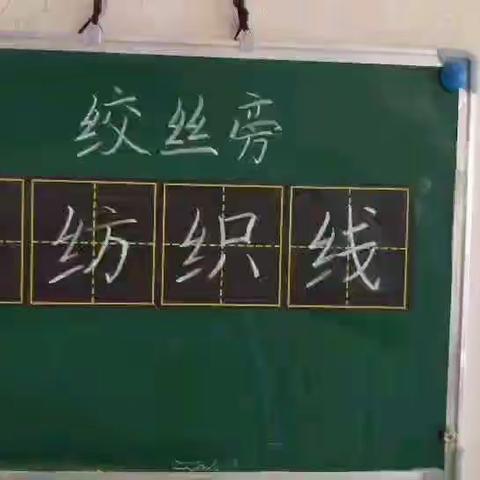 绞丝旁
纺织线